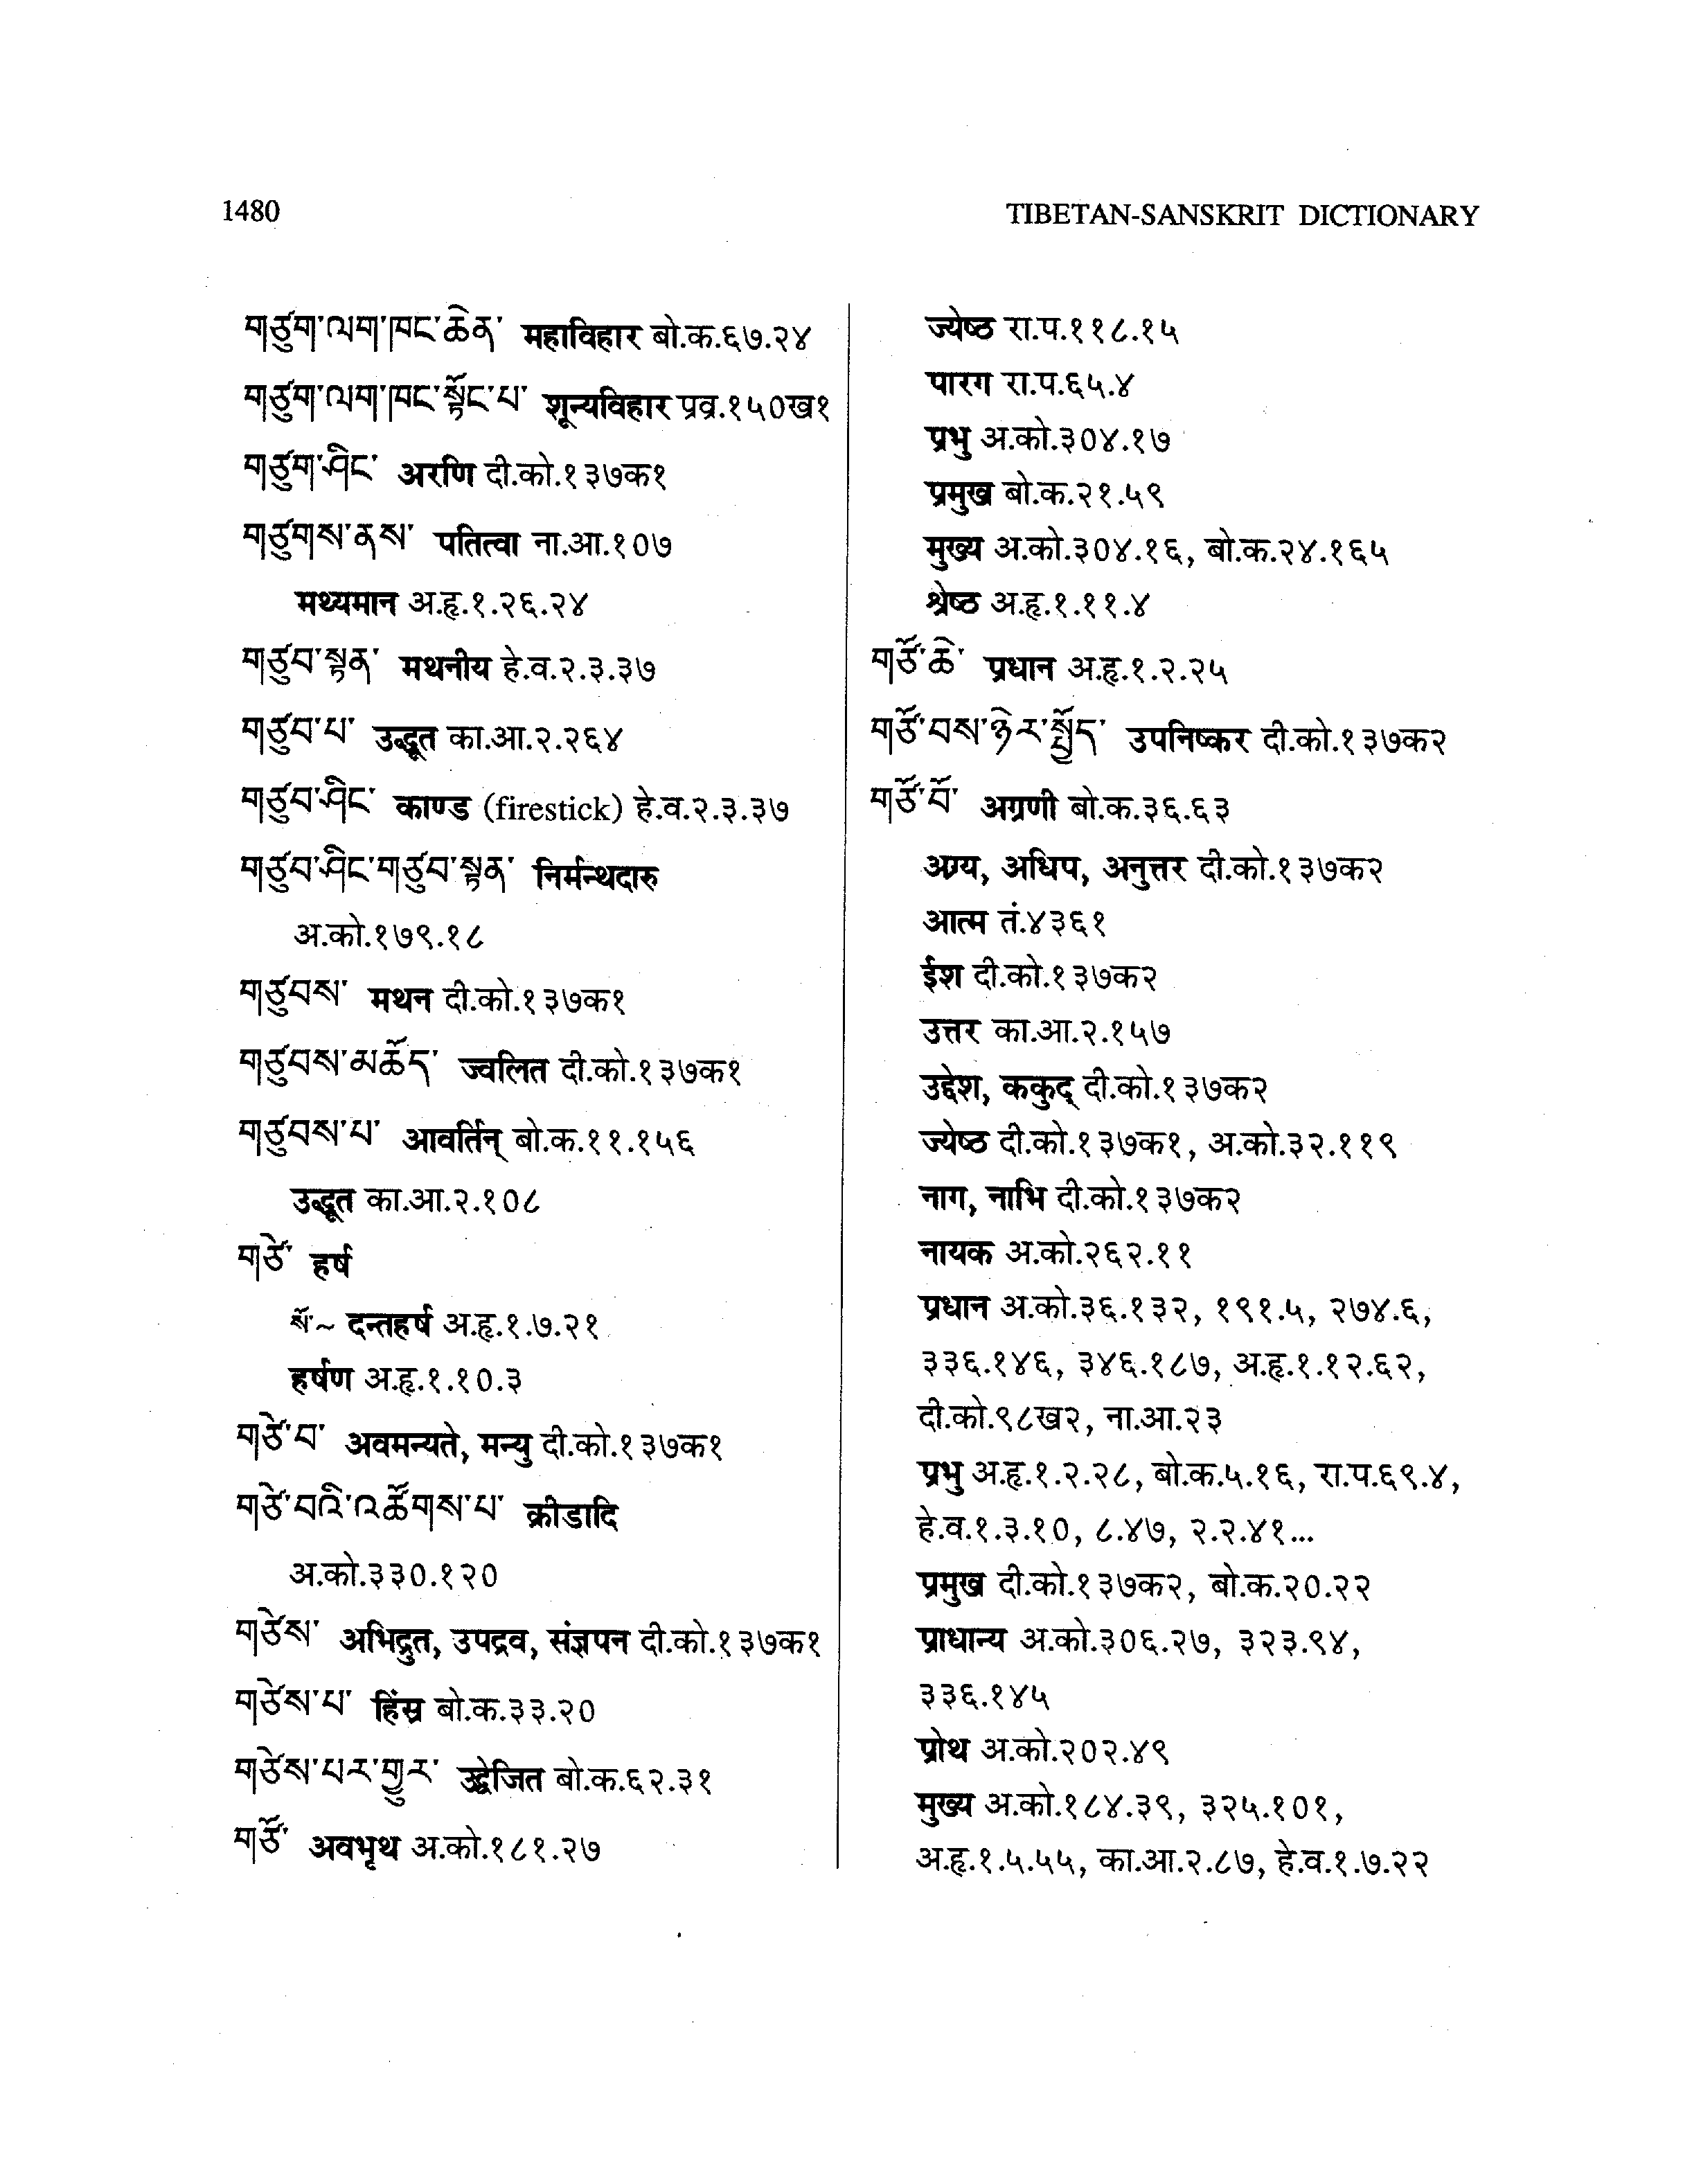 1480
TIBETAN-SANSKRIT DICTIONARY
གཙུག་ལག་ཁང་ཆེན་ महाविहार बो.क.६७.२४
གཙུག་ལག་ཁང་སྟོང་པ་ शून्यविहार प्रव्र.१५०ख१
གཙུག་ཤིང་ अरणि दी.को.१३७क१
གཙུགས་ནས་ पतित्वा ना.आ.१०७
मथ्यमान अ.हृ.१.२६.२४
གཙུབ་སྟན་ मथनीय हे.व.२.३.३७
གཙུབ་པ་ उद्धूत का.आ.२.२६४
གཙུབ་ཤིང་ काण्ड (firestick) हे.व.२.३.३७
གཙུབ་ཤིང་གཙུབ་སྟན་ निर्मन्थदारु
अ.को.१७९.१८
གཙུབས་ मथन दी.को.१३७क१
གཙུབས་མཆོད་ ज्वलित दी.को.१३७क१
གཙུབས་པ་ आवर्तिन् बो.क.११.१५६
उद्धूत का.आ.२.१०८
གཙེ་ हर्ष
སོ་~ दन्तहर्ष अ.हृ.१.७.२१
हर्षण अ.हृ.१.१०.३
གཙེ་བ་ अवमन्यते, मन्यु दी.को.१३७क१
གཙེ་བའི་འཚོགས་པ་ क्रीडादि
अ.को.३३०.१२०
གཙེས་ अभिद्रुत, उपद्रव, संज्ञपन दी.को.१३७क१
གཙེས་པ་ हिंस्र बो.क.३३.२०
གཙེས་པར་གྱུར་ उद्वेजित बो.क.६२.३१
གཙོ་ अवभृथ अ.को.१८१.२७
ज्येष्ठ रा.प.११८.१५
पारग रा.प.६५.४
प्रभु अ.को.३०४.१७
प्रमुख बो.क.२१.५९
मुख्य अ.को.३०४.१६, बो.क.२४.१६५
श्रेष्ठ अ.हृ.१.११.४
གཙོ་ཆེ་ प्रधान अ.हृ.१.२.२५
གཙོ་བས་ཉེར་སྤྱོད་ उपनिष्कर दी.को.१३७क२
གཙོ་བོ་ अग्रणी बो.क.३६.६३
अग्र्य, अधिप, अनुत्तर दी.को.१३७क२
आत्म तं.४३६१
ईश दी.को.१३७क२
उत्तर का.आ.२.१५७
उद्देश, ककुद् दी.को.१३७क२
ज्येष्ठ दी.को.१३७क१, अ.को.३२.११९
नाग, नाभि दी.को.१३७क२
नायक अ.को.२६२.११
प्रधान अ.को.३६.१३२, १९१.५, २७४.६,
३३६.१४६, ३४६.१८७, अ.हृ.१.१२.६२,
दी.को.९८ख२, ना.आ.२३
प्रभु अ.हृ.१.२.२८, बो.क.५.१६, रा.प.६९.४,
हे.व.१.३.१०, ८.४७, २.२.४१...
प्रमुख दी.को.१३७क२, बो.क.२०.२२
प्राधान्य अ.को.३०६.२७, ३२३.९४,
३३६.१४५
प्रोथ अ.को.२०२.४९
मुख्य अ.को.१८४.३९, ३२५.१०१,
अ.हृ.१.५.५५, का.आ.२.८७, हे.व.१.७.२२